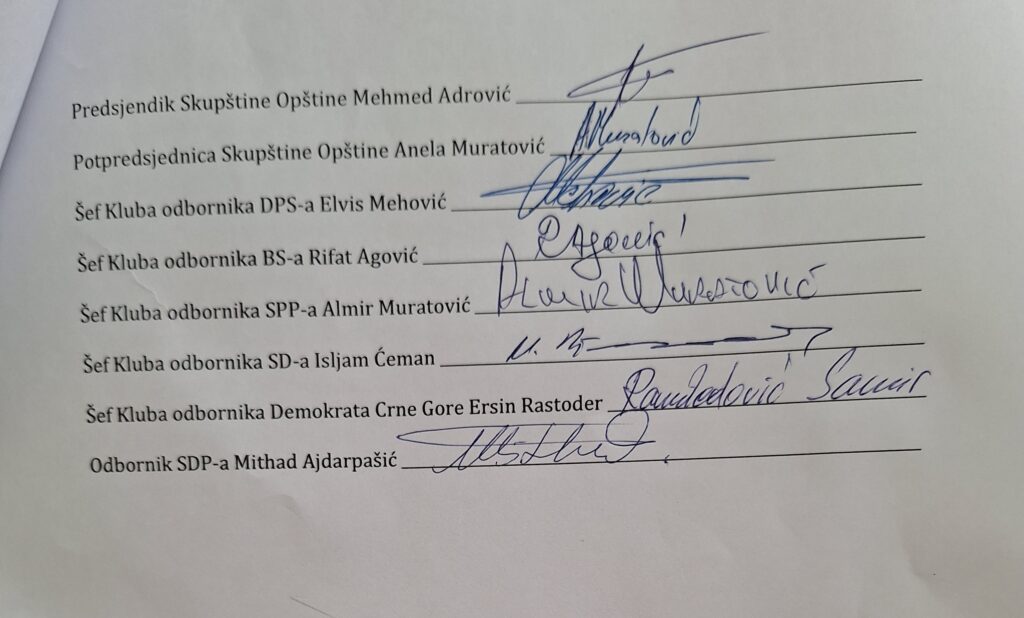 Predsjendik Skupštine Opštine Mehmed Adrović
Potpredsjednica Skupštine Opštine Anela Muratović AMuratović
Šef Kluba odbornika DPS-a Elvis Mehović
Šef Kluba odbornika BS-a Rifat Agović RAgović
Šef Kluba odbornika SPP-a Almir Muratović Almir Muratović
Šef Kluba odbornika SD-a Isljam Ćeman
Šef Kluba odbornika Demokrata Crne Gore Ersin Rastoder Ramdedović Samir
Odbornik SDP-a Mithad Ajdarpašić